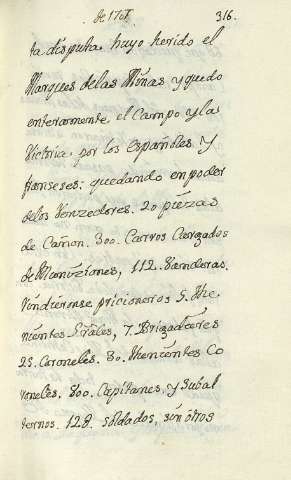 de 1707. 316.
ta disputa, huyo herido el
Marques delas Minas y quedo
enteramente, el Campo y la
Victoria, por los Españoles, y
franseses: quedando en poder
delos Venzedores. 20 piezas
de Cañon. 300. Carros Cargados
de Muniziones, 112. Vanderas.
Rindieronse pricioneros 5. the-
nientes Grāles, 7. Brigadieres
25. Coroneles. 80. thenientes Co
roneles. 800. Capitanes, y Subal
ternos. 12 @. soldados, sin otros